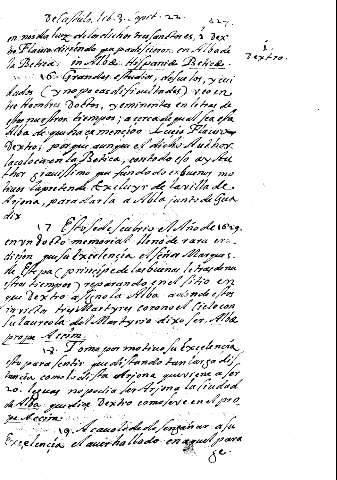 De Castulo, lib. 3. capit. 22. 327.
en nada luz de los dichos tres santos, à Dex
tro Flavio diziendo que padecieron en Alba de
la Betica: in Alba Hispaniæ Beticæ.
Dextro.
16 Grandes estudios, desuelos, y cui
dados (y no pocas dificultades) veo en
tre Hombres Doctos, y eminentes en letras de
estos nuestros tiempos; acerca de qual sea esta
Alba de que haze mencion Lucio Flavio
Dextro; porque aunque el dicho Author
la coloca en la Betica, con todo eso ay
grauissimo que fundado en buenos mo
tiuos la pretende excluyr de la villa de
Arjona, para darla a Abla junto de Gua
dix
17 Esto se descubre el Año de 1629.
en un docto memorial lleno de rara eru
dicion que su Excelencia el señor Marques
de Estepa (principe de las buenas letras de nu
estros tiempos) reparando en el sitio en
que Dextro asigno la Alba adonde estos
inuictos tres Martyres coronò el Cielo con
su laureola del Martyrio dixo ser Alba
prope Accim.
18. Tomo por motiuo su Excelencia
esto para sentir que distando tan largo dis
tancia, como lo dista Arjona que viene a ser
20. leguas no podia ser Arjona la ciudad
de Alba que dize Dextro como se ve en el pro
pe Accim.
19 Acauolo de desengañar a su
Excelencia el auer hallado en aquel para
ge